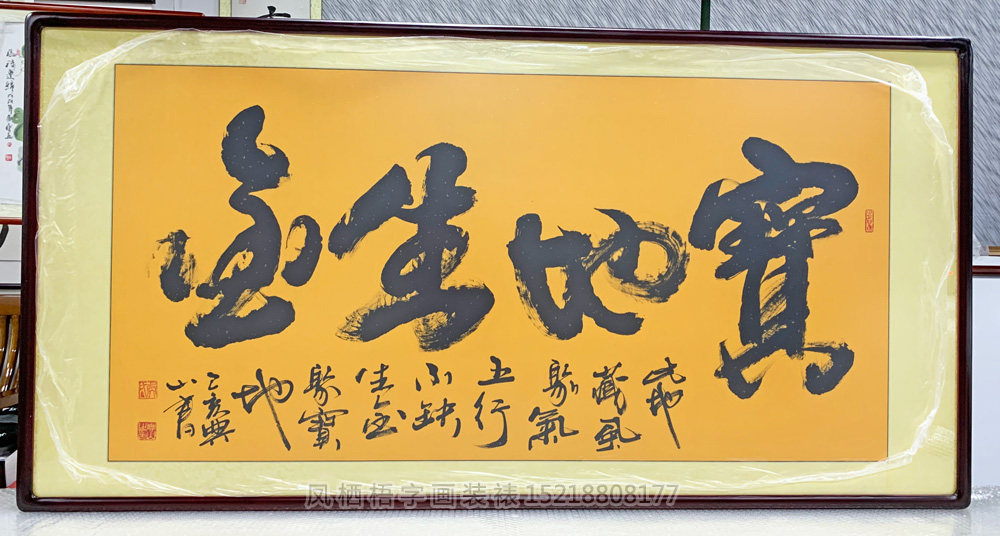 寶地生金
此地
藏風
聚氣
五行
不缺
生金
聚寶
地
乙亥興
山書
凤栖梧字画装裱15218808177